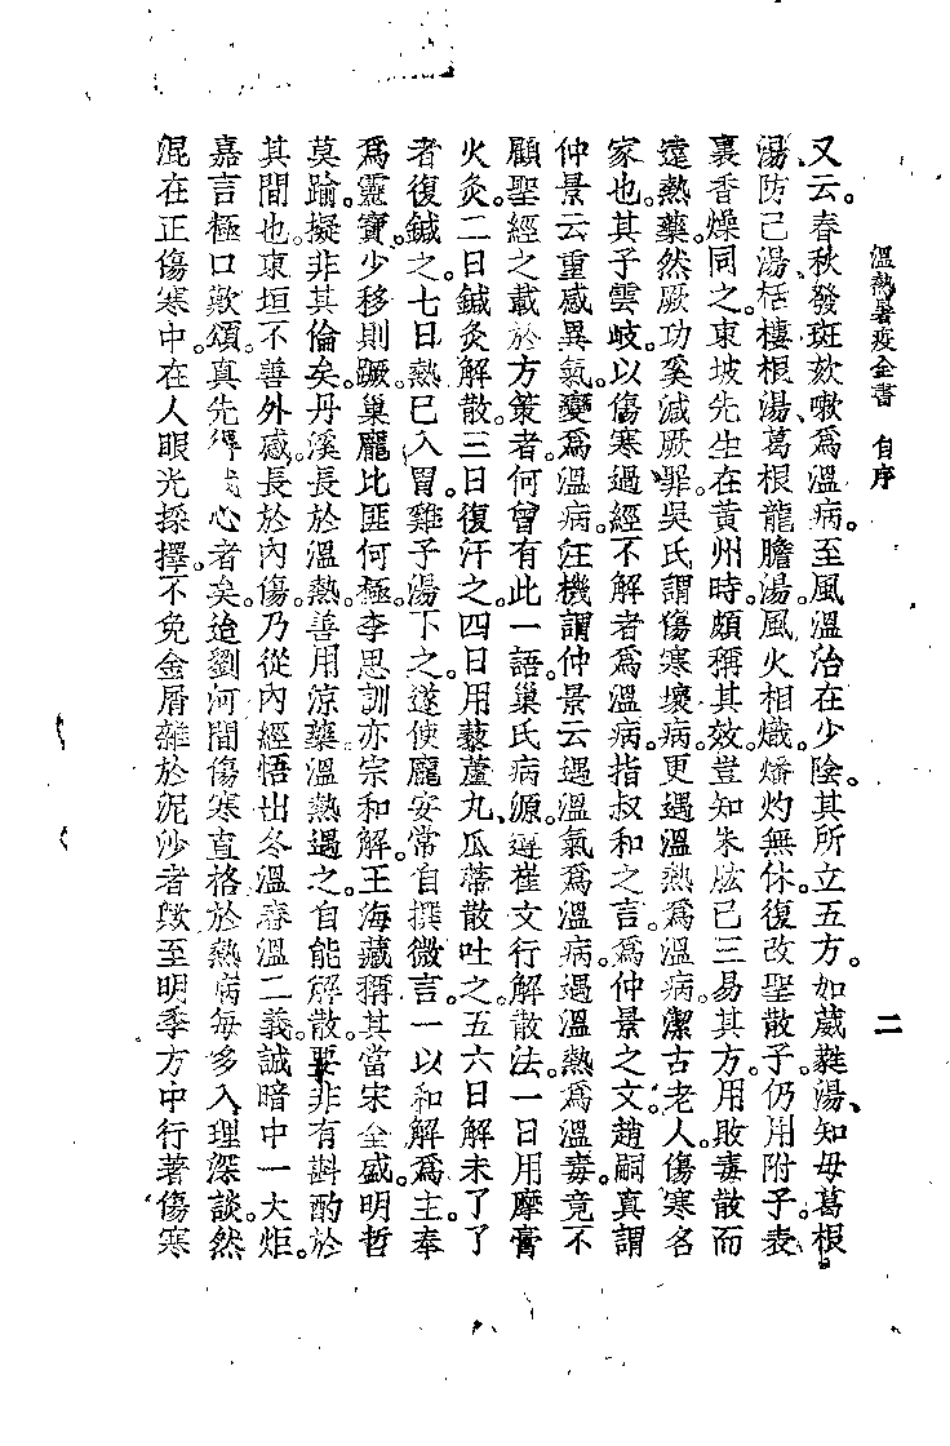 溫熱暑疫全書　自序　二
又云。春秋發斑欬嗽爲溫病。至風溫治在少陰。其所立五方。如葳蕤湯、知母葛根
湯、防己湯、栝樓根湯、葛根龍膽湯。風火相熾。燔灼無休。復改聖散子。仍用附子。表
裏香燥同之。東坡先生在黃州時。頗稱其效。豈知朱肱已三易其方。用敗毒散而
遠熱藥。然厥功奚減厥罪。吳氏謂傷寒壞病。更遇溫熱爲溫病。潔古老人。傷寒名
家也。其子雲岐。以傷寒過經不解者爲溫病。指叔和之言。爲仲景之文。趙嗣眞謂
仲景云重感異氣。變爲溫病。汪機謂仲景云遇溫氣爲溫病。遇溫熱爲溫毒。竟不
顧聖經之載於方策者。何曾有此一語。巢氏病源、遵崔文行解散法。一日用摩膏
火灸。二日鍼灸解散。三日復汗之。四日用藜蘆丸、瓜蒂散吐之。五六日解未了了
者復鍼之。七日熱已入胃。雞子湯下之。遂使龐安常自撰微言。一以和解爲主。奉
爲靈寶。少移則蹶。巢龐比匪何極。李思訓亦宗和解。王海藏稱其當宋全盛。明哲
莫踰。擬非其倫矣。丹溪長於溫熱。善用涼藥。溫熱遇之。自能解散。要非有斟酌於
其間也。東垣不善外感。長於內傷。乃從內經悟出冬溫春溫二義。誠暗中一大炬。
嘉言極口歎頌。眞先得我心者矣。迨劉河間傷寒直格於熱病每多入理深談。然
混在正傷寒中。在人眼光採擇。不免金屑雜於泥沙者歟至明季方中行著傷寒